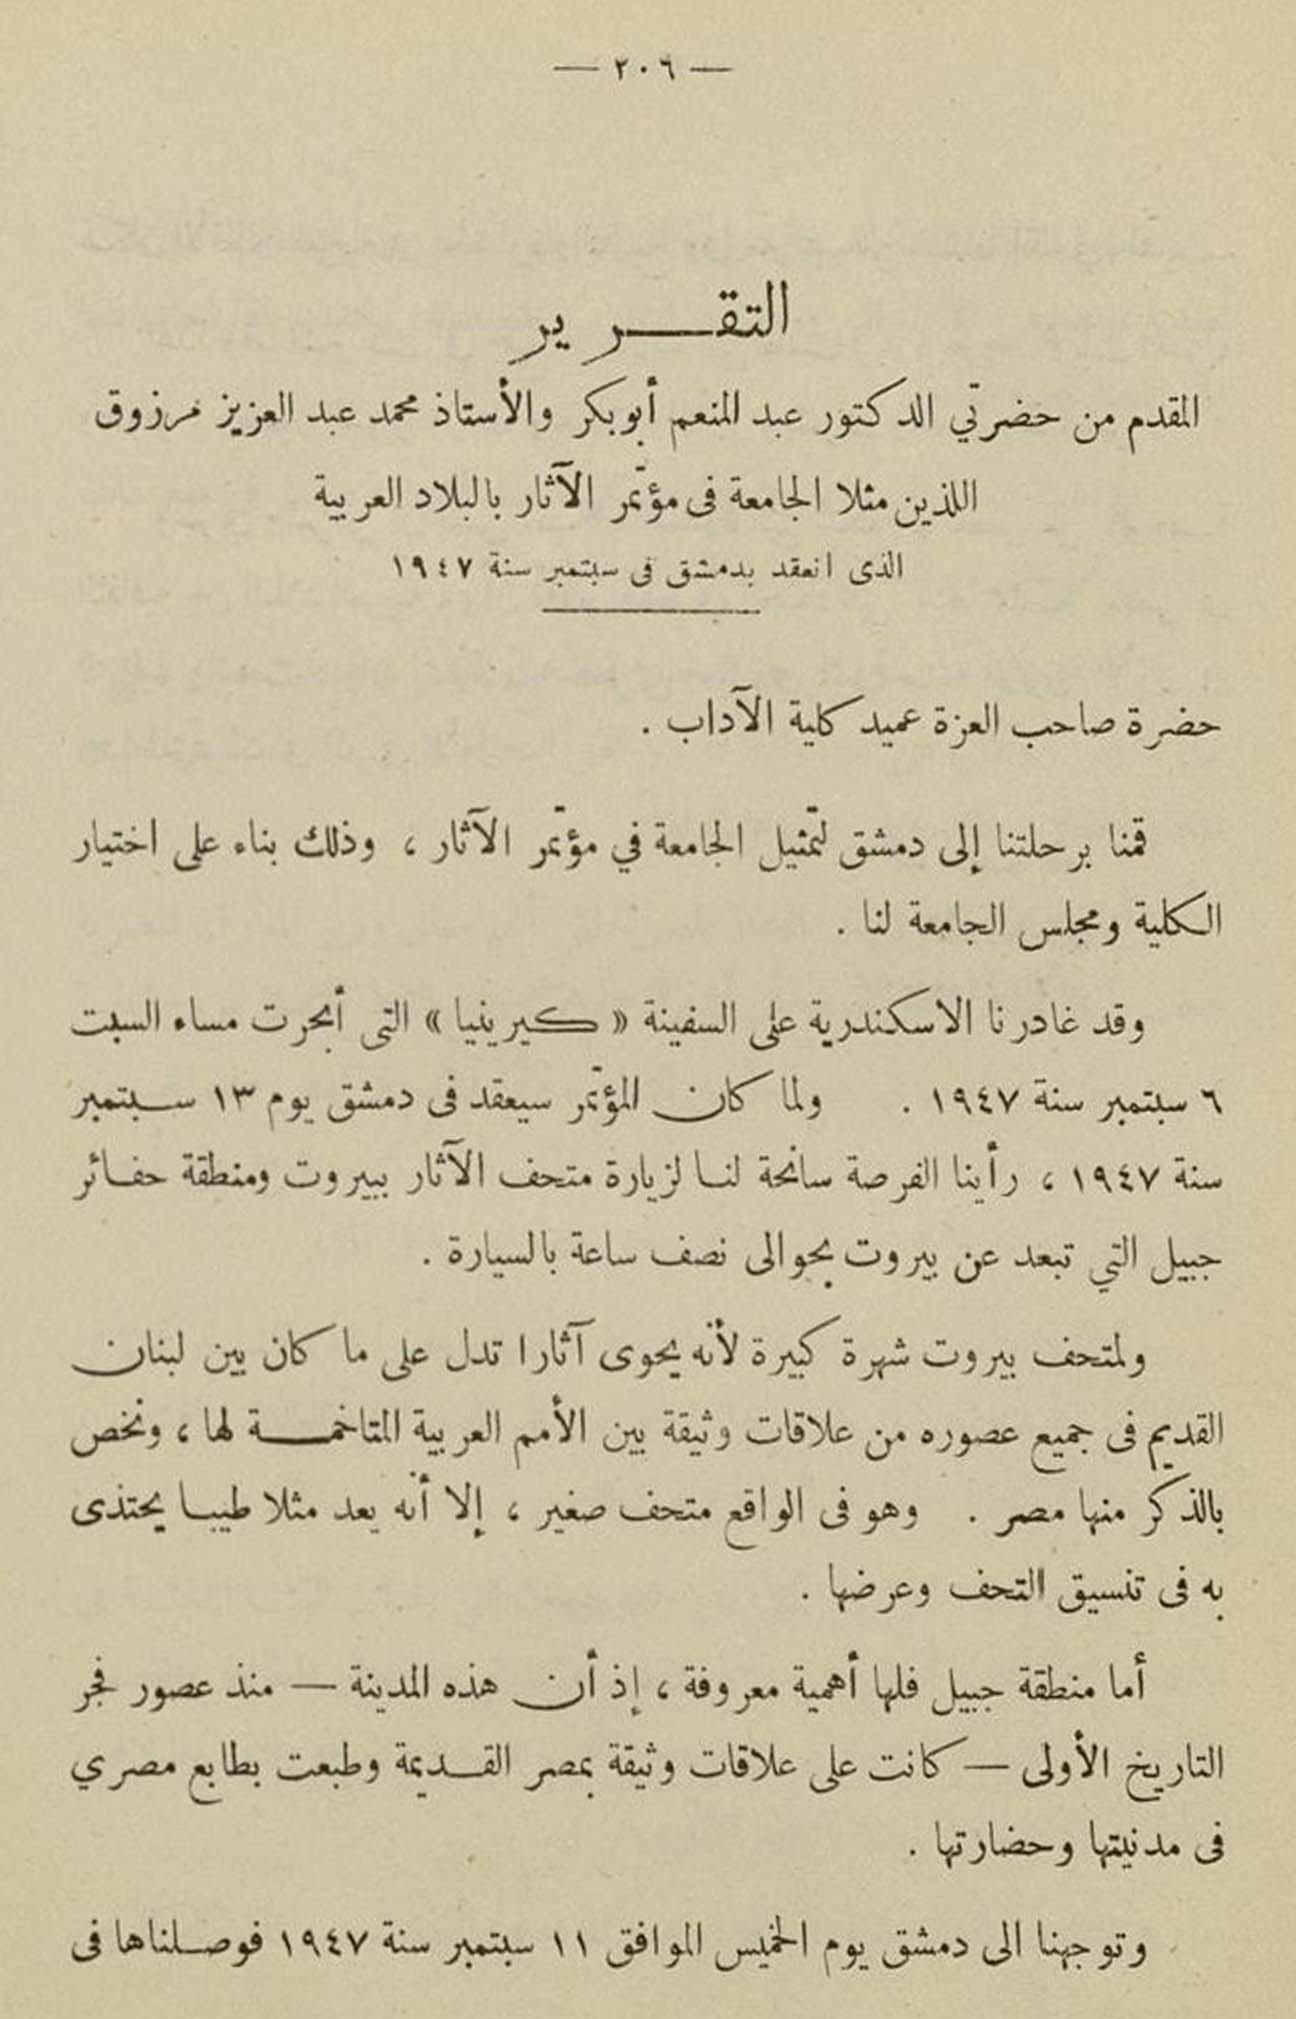 — ٢٠٦ —
التقـــرير
المقدم من حضرتي الدكتور عبد المنعم أبو بكر والأستاذ محمد عبد العزيز مرزوق
اللذين مثلا الجامعة فى مؤتمر الآثار بالبلاد العربية
الذى انعقد بدمشق فى سبتمبر سنة ١٩٤٧
حضرة صاحب العزة عميد كلية الآداب .
قمنا برحلتنا إلى دمشق لتمثيل الجامعة في مؤتمر الآثار ، وذلك بناء على اختيار
الكلية ومجلس الجامعة لنا .
وقد غادرنا الاسكندرية على السفينة « كيرينيا » التى أبحرت مساء السبت
٦ سبتمبر سنة ١٩٤٧ . ولما كان المؤتمر سيعقد فى دمشق يوم ١٣ سبتمبر
سنة ١٩٤٧ ، رأينا الفرصة سانحة لنا لزيارة متحف الآثار ببيروت ومنطقة حفائر
جبيل التي تبعد عن بيروت بحوالى نصف ساعة بالسيارة .
ولمتحف بيروت شهرة كبيرة لأنه يحوى آثارا تدل على ما كان بين لبنان
القديم فى جميع عصوره من علاقات وثيقة بين الأمم العربية المتاخمـــة لها ، ونخص
بالذكر منها مصر . وهو فى الواقع متحف صغير ، إلا أنه يعد مثلا طيبا يحتذى
به فى تنسيق التحف وعرضها .
أما منطقة جبيل فلها أهمية معروفة ، إذ أن هذه المدينة — منذ عصور فجر
التاريخ الأولى — كانت على علاقات وثيقة بمصر القديمة وطبعت بطابع مصري
فى مدنيتها وحضارتها .
وتوجهنا الى دمشق يوم الخميس الموافق ١١ سبتمبر سنة ١٩٤٧ فوصلناها فى